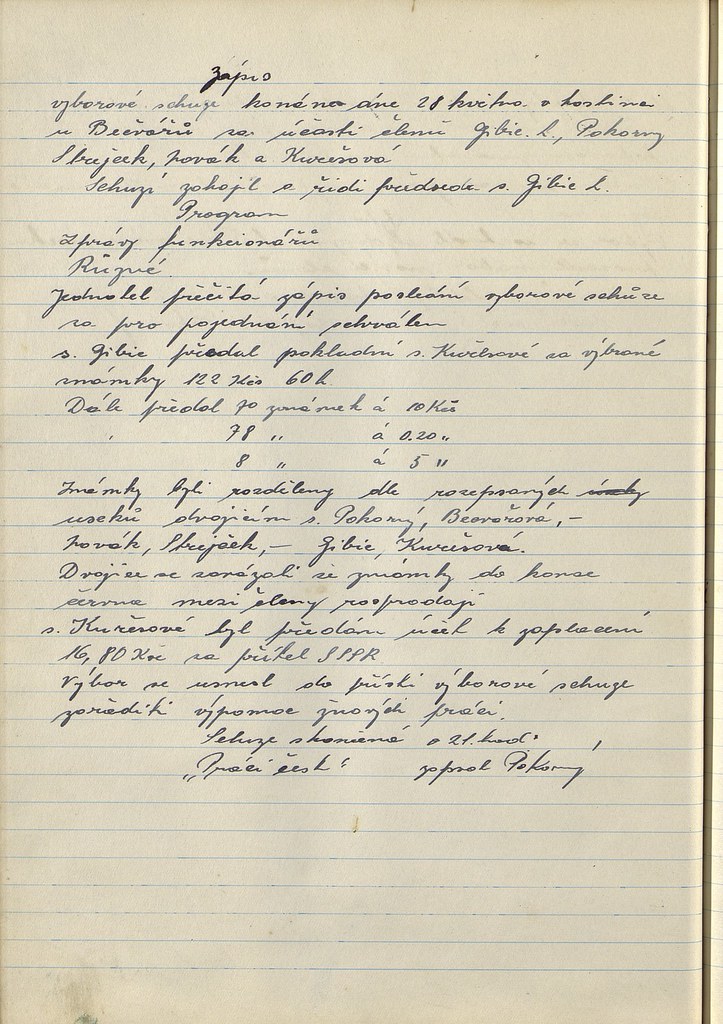 zápis
výborové schuze konáne dne 28 května v hostinci
u Bečvářů za účasti členů Gibic. L., Pokorný
Strejček, Novák a Kurešová
Schuzi zahájil a řidi předseda s. Gibic L.
Program
Zprávy funkcionářů
Různé.
Jednatel přečítá zápis poslední výborové schůze
za pro pojednání schválen
s. Gibic předal pokladní s. Kurešové za vybrané
známky 122 Kčs 60 h.
Dále předal 70 známek á 10 Kčs
78 " á 0.20 "
8 " á 5 "
Známky byli rozděleny dle rozepsaných
useků dvojicím s. Pokorný, Becvářová, –
Novák, Strejček, – Gibic, Kurešová.
Dvojice se zavázali že známky do konce
června mezi členy rosprodají
s. Kurešové byl předán účet k zaplacení
16,80 Kčs za přítel SSSR
Výbor se usnesl do příští výborové schuze
zařiditi výpomoc žnových prácí.
Schuze skončená o 21. hod.
„Práci čest" zapsal Pokorný